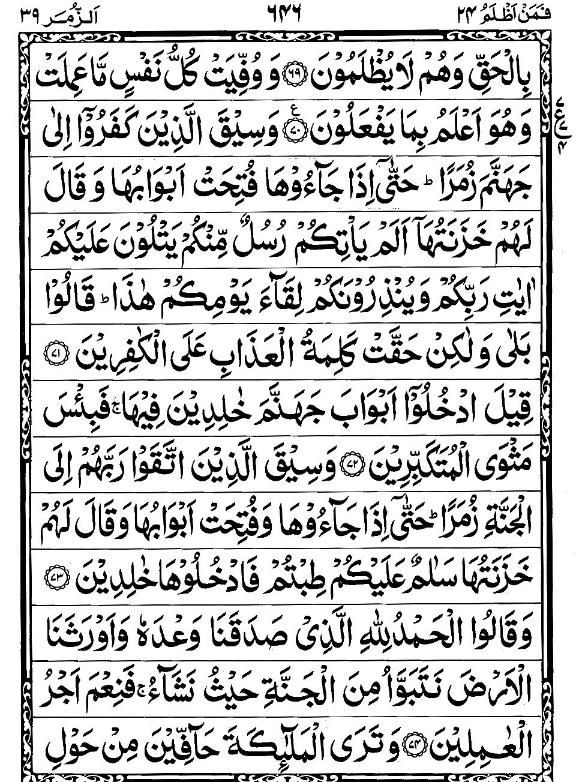 فَمَنْ اَظْلَمُ ٢٤ ٦٤٦ اَلزُّمَر ٣٩
بِالْحَقِّ وَهُمْ لَا يُظْلَمُوْنَ ﴿٦٩﴾ وَوُفِّيَتْ كُلُّ نَفْسٍ مَّا عَمِلَتْ
وَهُوَ اَعْلَمُ بِمَا يَفْعَلُوْنَ ﴿٧٠﴾ ع وَسِيْقَ الَّذِيْنَ كَفَرُوْۤا اِلٰى
جَهَنَّمَ زُمَرًا ؕ حَتّٰۤى اِذَا جَآءُوْهَا فُتِحَتْ اَبْوَابُهَا وَقَالَ
لَهُمْ خَزَنَتُهَاۤ اَلَمْ يَاْتِكُمْ رُسُلٌ مِّنْكُمْ يَتْلُوْنَ عَلَيْكُمْ
اٰيٰتِ رَبِّكُمْ وَيُنْذِرُوْنَكُمْ لِقَآءَ يَوْمِكُمْ هٰذَا ؕ قَالُوْا
بَلٰى وَلٰكِنْ حَقَّتْ كَلِمَةُ الْعَذَابِ عَلَى الْكٰفِرِيْنَ ﴿٧١﴾
قِيْلَ ادْخُلُوْۤا اَبْوَابَ جَهَنَّمَ خٰلِدِيْنَ فِيْهَا ۚ فَبِئْسَ
مَثْوَى الْمُتَكَبِّرِيْنَ ﴿٧٢﴾ وَسِيْقَ الَّذِيْنَ اتَّقَوْا رَبَّهُمْ اِلَى
الْجَنَّةِ زُمَرًا ؕ حَتّٰۤى اِذَا جَآءُوْهَا وَفُتِحَتْ اَبْوَابُهَا وَقَالَ لَهُمْ
خَزَنَتُهَا سَلٰمٌ عَلَيْكُمْ طِبْتُمْ فَادْخُلُوْهَا خٰلِدِيْنَ ﴿٧٣﴾
وَقَالُوا الْحَمْدُ لِلّٰهِ الَّذِيْ صَدَقَنَا وَعْدَهٗ وَاَوْرَثَنَا
الْاَرْضَ نَتَبَوَّاُ مِنَ الْجَنَّةِ حَيْثُ نَشَآءُ ۚ فَنِعْمَ اَجْرُ
الْعٰمِلِيْنَ ﴿٧٤﴾ وَتَرَى الْمَلٰٓئِكَةَ حَآفِّيْنَ مِنْ حَوْلِ